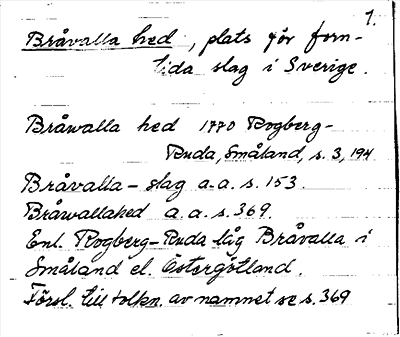 1.
Bråvalla hed, plats för forn-
tida slag i Sverige.
Bråwalla hed 1770 Rogberg-
Ruda, Småland, s. 3, 194
Bråvalla-slag a.a. s. 153.
Bråwallahed a.a. s. 369.
Enl. Rogberg-Ruda låg Bråvalla i
Småland el. Östergötland.
Försl. till tolkn. av namnet se s. 369